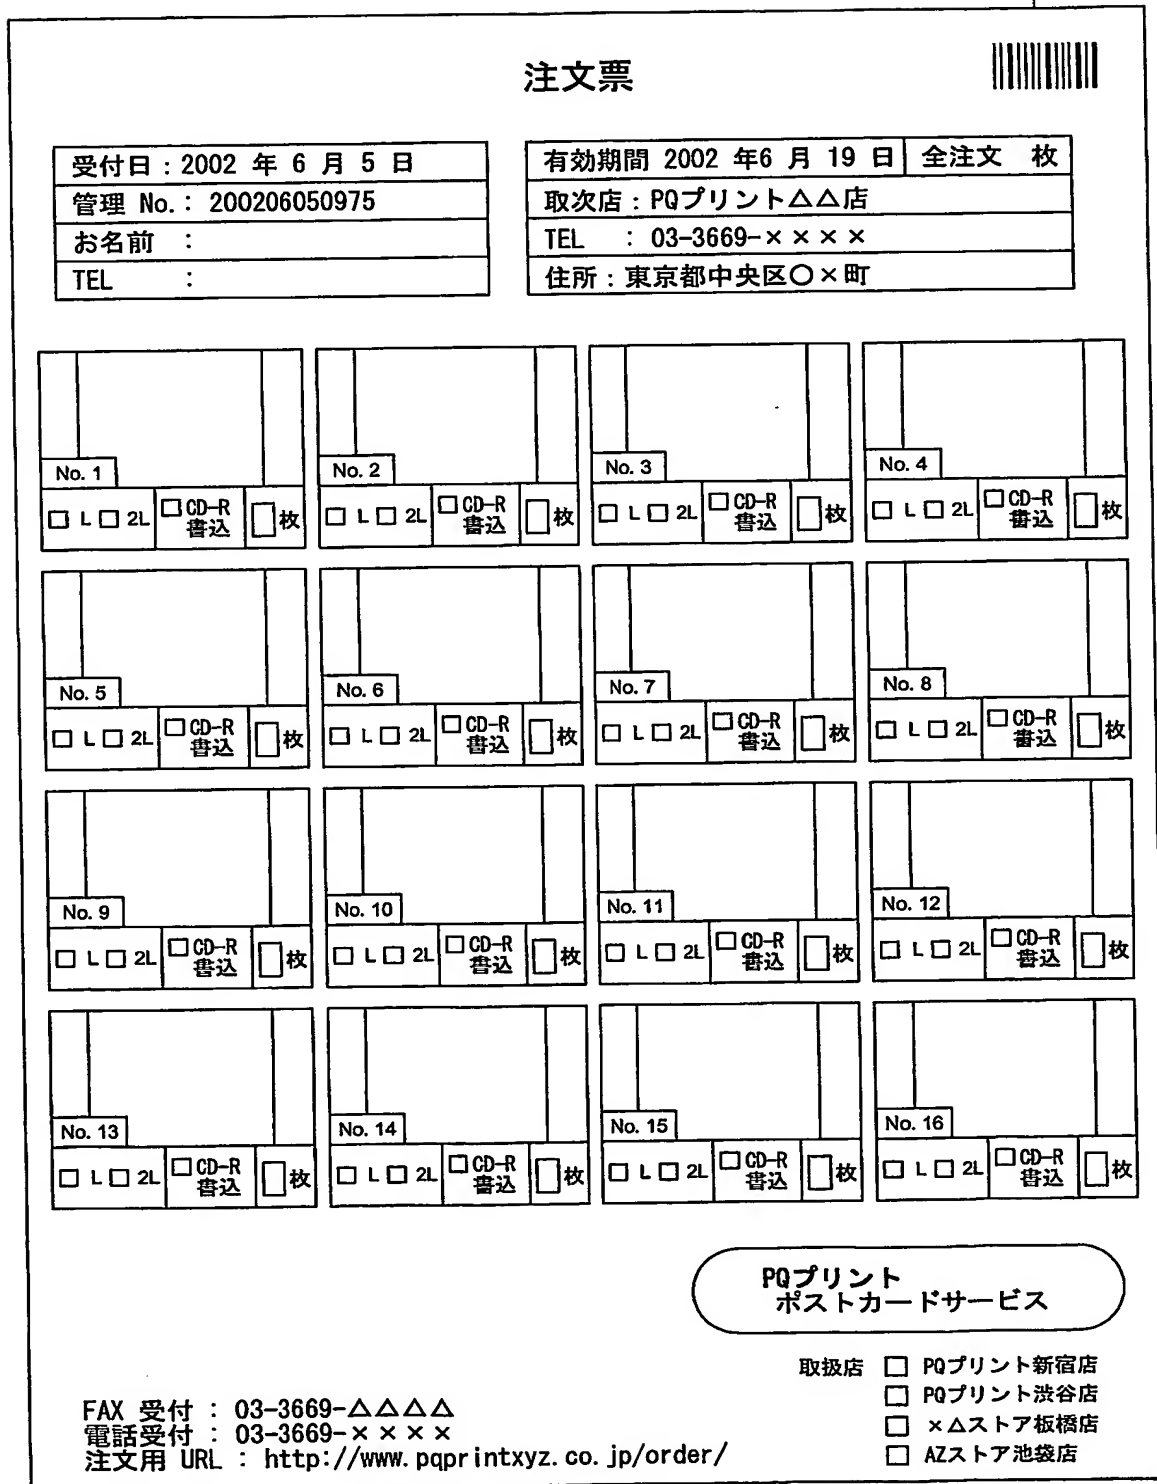 注文票
受付日：2002 年 6 月 5 日
管理 No.： 200206050975
お名前 ：
TEL ：
有効期間 2002 年6 月 19 日 全注文 枚
取次店：PQプリント△△店
TEL ： 03-3669-××××
住所：東京都中央区○×町
No. 1
□ L □ 2L □ CD-R 書込 □ 枚
No. 2
□ L □ 2L □ CD-R 書込 □ 枚
No. 3
□ L □ 2L □ CD-R 書込 □ 枚
No. 4
□ L □ 2L □ CD-R 書込 □ 枚
No. 5
□ L □ 2L □ CD-R 書込 □ 枚
No. 6
□ L □ 2L □ CD-R 書込 □ 枚
No. 7
□ L □ 2L □ CD-R 書込 □ 枚
No. 8
□ L □ 2L □ CD-R 書込 □ 枚
No. 9
□ L □ 2L □ CD-R 書込 □ 枚
No. 10
□ L □ 2L □ CD-R 書込 □ 枚
No. 11
□ L □ 2L □ CD-R 書込 □ 枚
No. 12
□ L □ 2L □ CD-R 書込 □ 枚
No. 13
□ L □ 2L □ CD-R 書込 □ 枚
No. 14
□ L □ 2L □ CD-R 書込 □ 枚
No. 15
□ L □ 2L □ CD-R 書込 □ 枚
No. 16
□ L □ 2L □ CD-R 書込 □ 枚
PQプリント
ポストカードサービス
取扱店 □ PQプリント新宿店
□ PQプリント渋谷店
□ ×△ストア板橋店
□ AZストア池袋店
FAX 受付 ： 03-3669-△△△△
電話受付 ： 03-3669-××××
注文用 URL ： http://www.pqprintxyz.co.jp/order/